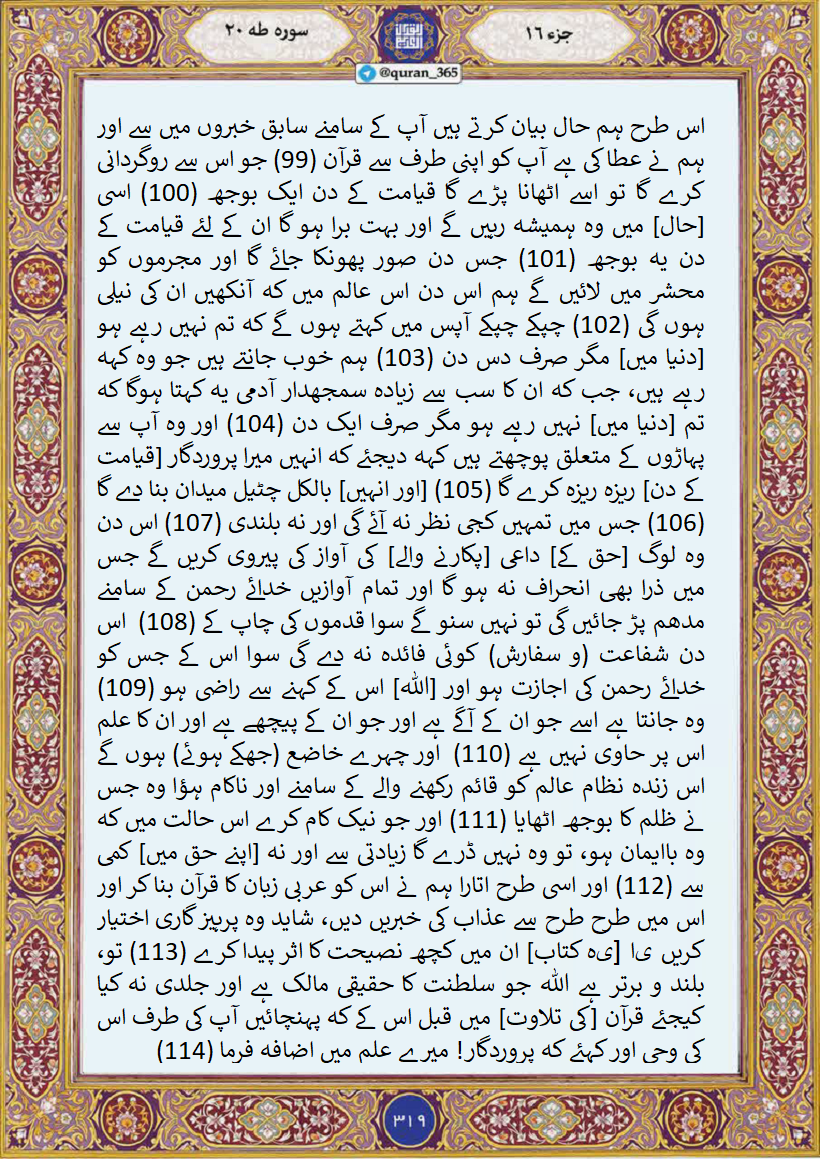 جزء ۱۶
سوره طه ۲۰
@quran_365
اس طرح ہم حال بیان کرتے ہیں آپ کے سامنے سابق خبروں میں سے اور
ہم نے عطا کی ہے آپ کو اپنی طرف سے قرآن (99) جو اس سے روگردانی
کرے گا تو اسے اٹھانا پڑے گا قیامت کے دن ایک بوجھ (100) اسی
[حال] میں وہ ہمیشہ رہیں گے اور بہت برا ہو گا ان کے لئے قیامت کے
دن یہ بوجھ (101) جس دن صور پھونکا جائے گا اور مجرموں کو
محشر میں لائیں گے ہم اس دن اس عالم میں کہ آنکھیں ان کی نیلی
ہوں گی (102) چپکے چپکے آپس میں کہتے ہوں گے کہ تم نہیں رہے ہو
[دنیا میں] مگر صرف دس دن (103) ہم خوب جانتے ہیں جو وہ کہہ
رہے ہیں، جب کہ ان کا سب سے زیادہ سمجھدار آدمی یہ کہتا ہوگا کہ
تم [دنیا میں] نہیں رہے ہو مگر صرف ایک دن (104) اور وہ آپ سے
پہاڑوں کے متعلق پوچھتے ہیں کہہ دیجئے کہ انہیں میرا پروردگار [قیامت
کے دن] ریزہ ریزہ کرے گا (105) [اور انہیں] بالکل چٹیل میدان بنا دے گا
(106) جس میں تمہیں کجی نظر نہ آئے گی اور نہ بلندی (107) اس دن
وہ لوگ [حق کے] داعی [پکارنے والے] کی آواز کی پیروی کریں گے جس
میں ذرا بھی انحراف نہ ہو گا اور تمام آوازیں خدائے رحمن کے سامنے
مدھم پڑ جائیں گی تو نہیں سنو گے سوا قدموں کی چاپ کے (108) اس
دن شفاعت (و سفارش) کوئی فائدہ نہ دے گی سوا اس کے جس کو
خدائے رحمن کی اجازت ہو اور [اللہ] اس کے کہنے سے راضی ہو (109)
وہ جانتا ہے اسے جو ان کے آگے ہے اور جو ان کے پیچھے ہے اور ان کا علم
اس پر حاوی نہیں ہے (110) اور چہرے خاضع (جھکے ہوئے) ہوں گے
اس زندہ نظام عالم کو قائم رکھنے والے کے سامنے اور ناکام ہؤا وہ جس
نے ظلم کا بوجھ اٹھایا (111) اور جو نیک کام کرے اس حالت میں کہ
وہ باایمان ہو، تو وہ نہیں ڈرے گا زیادتی سے اور نہ [اپنے حق میں] کمی
سے (112) اور اسی طرح اتارا ہم نے اس کو عربی زبان کا قرآن بنا کر اور
اس میں طرح طرح سے عذاب کی خبریں دیں، شاید وہ پرہیزگاری اختیار
کریں یا [یہ کتاب] ان میں کچھ نصیحت کا اثر پیدا کرے (113) تو،
بلند و برتر ہے اللہ جو سلطنت کا حقیقی مالک ہے اور جلدی نہ کیا
کیجئے قرآن [کی تلاوت] میں قبل اس کے کہ پہنچائیں آپ کی طرف اس
کی وحی اور کہئے کہ پروردگار! میرے علم میں اضافہ فرما (114)
۳۱۹